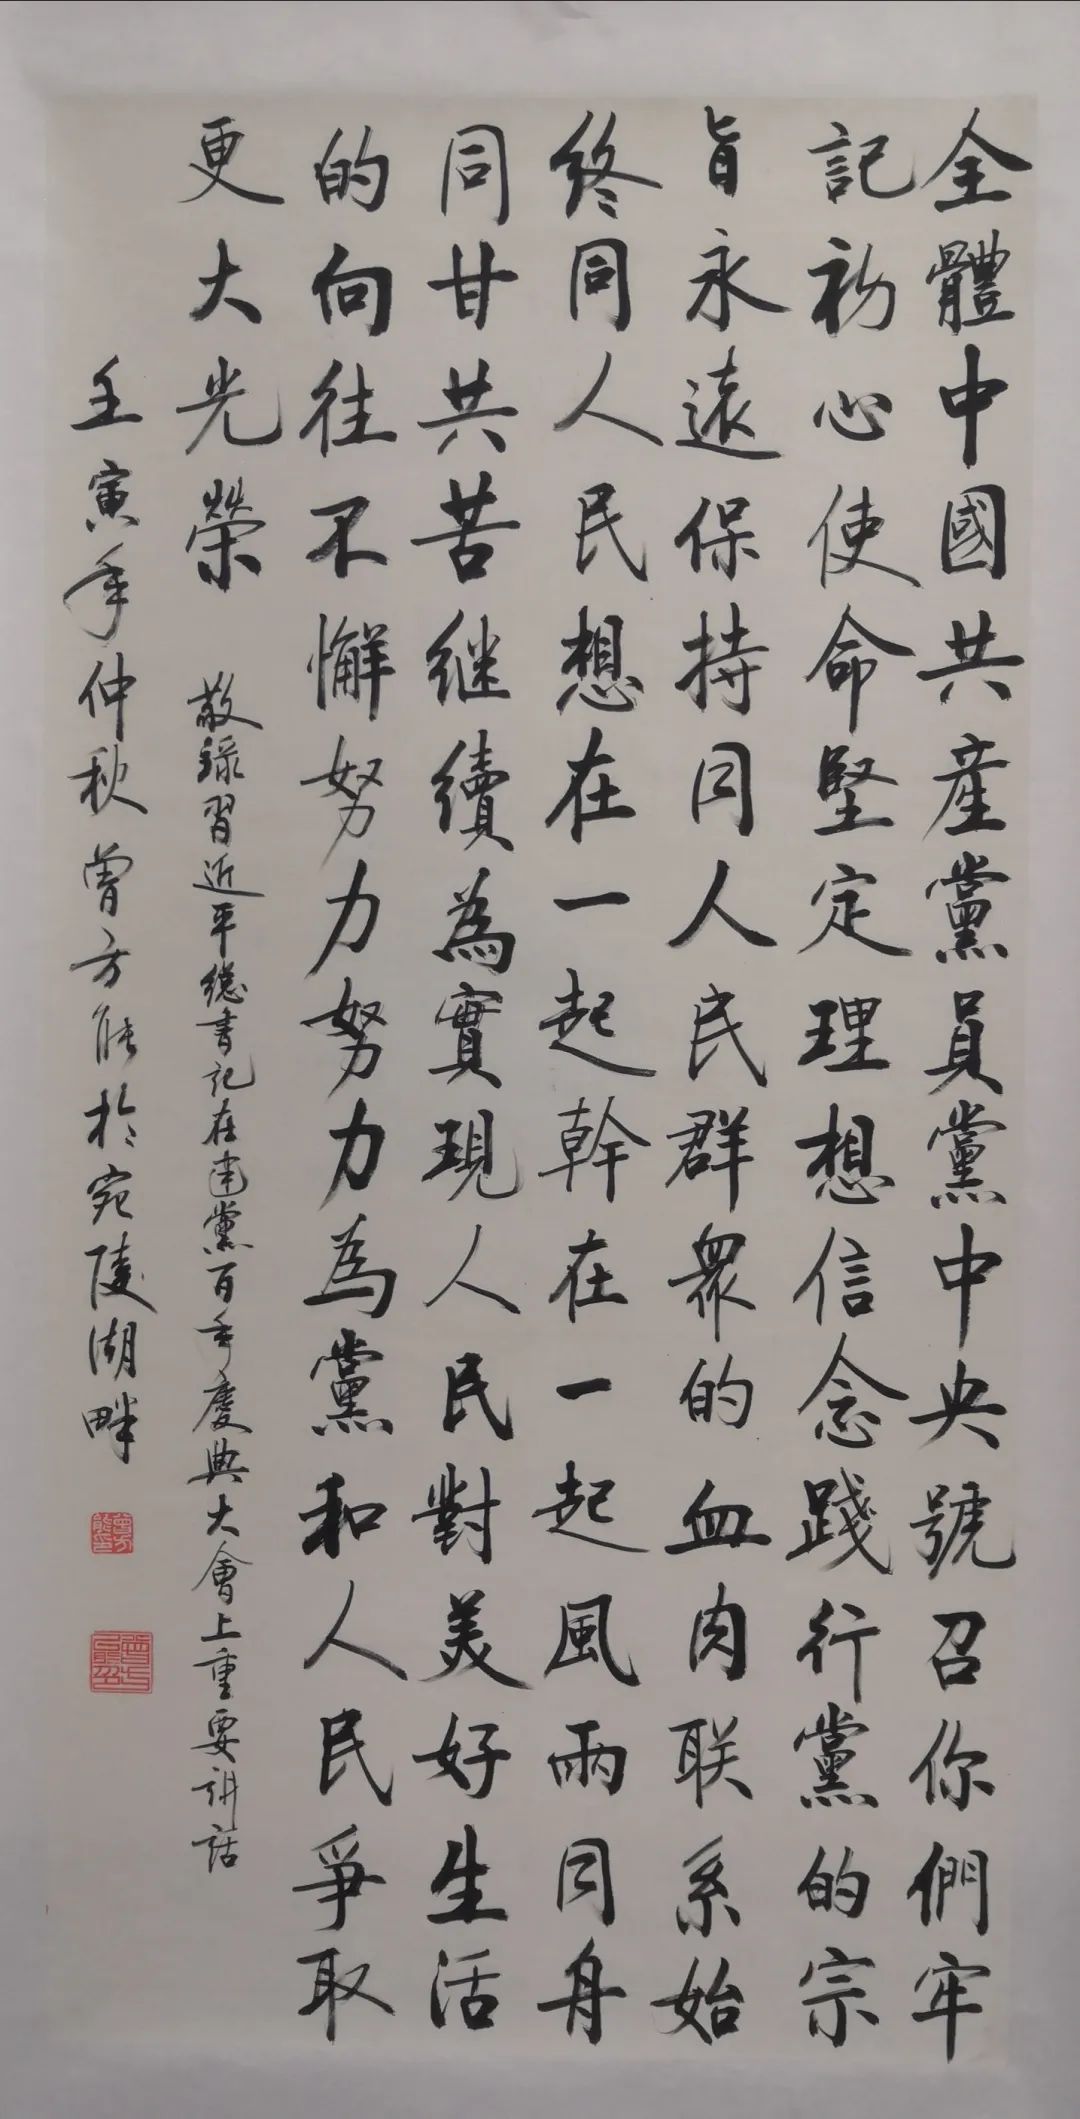 全體中國共産黨員黨中央號召你們牢
記初心使命堅定理想信念踐行黨的宗
旨永遠保持同人民群衆的血肉联系始
終同人民想在一起幹在一起風雨同舟
同甘共苦继續為實現人民對美好生活
的向往不懈努力努力為黨和人民爭取
更大光榮
敬録習近平總書記在建黨百年慶典大會上重要講話
壬寅年仲秋曾方能於宛陵湖畔